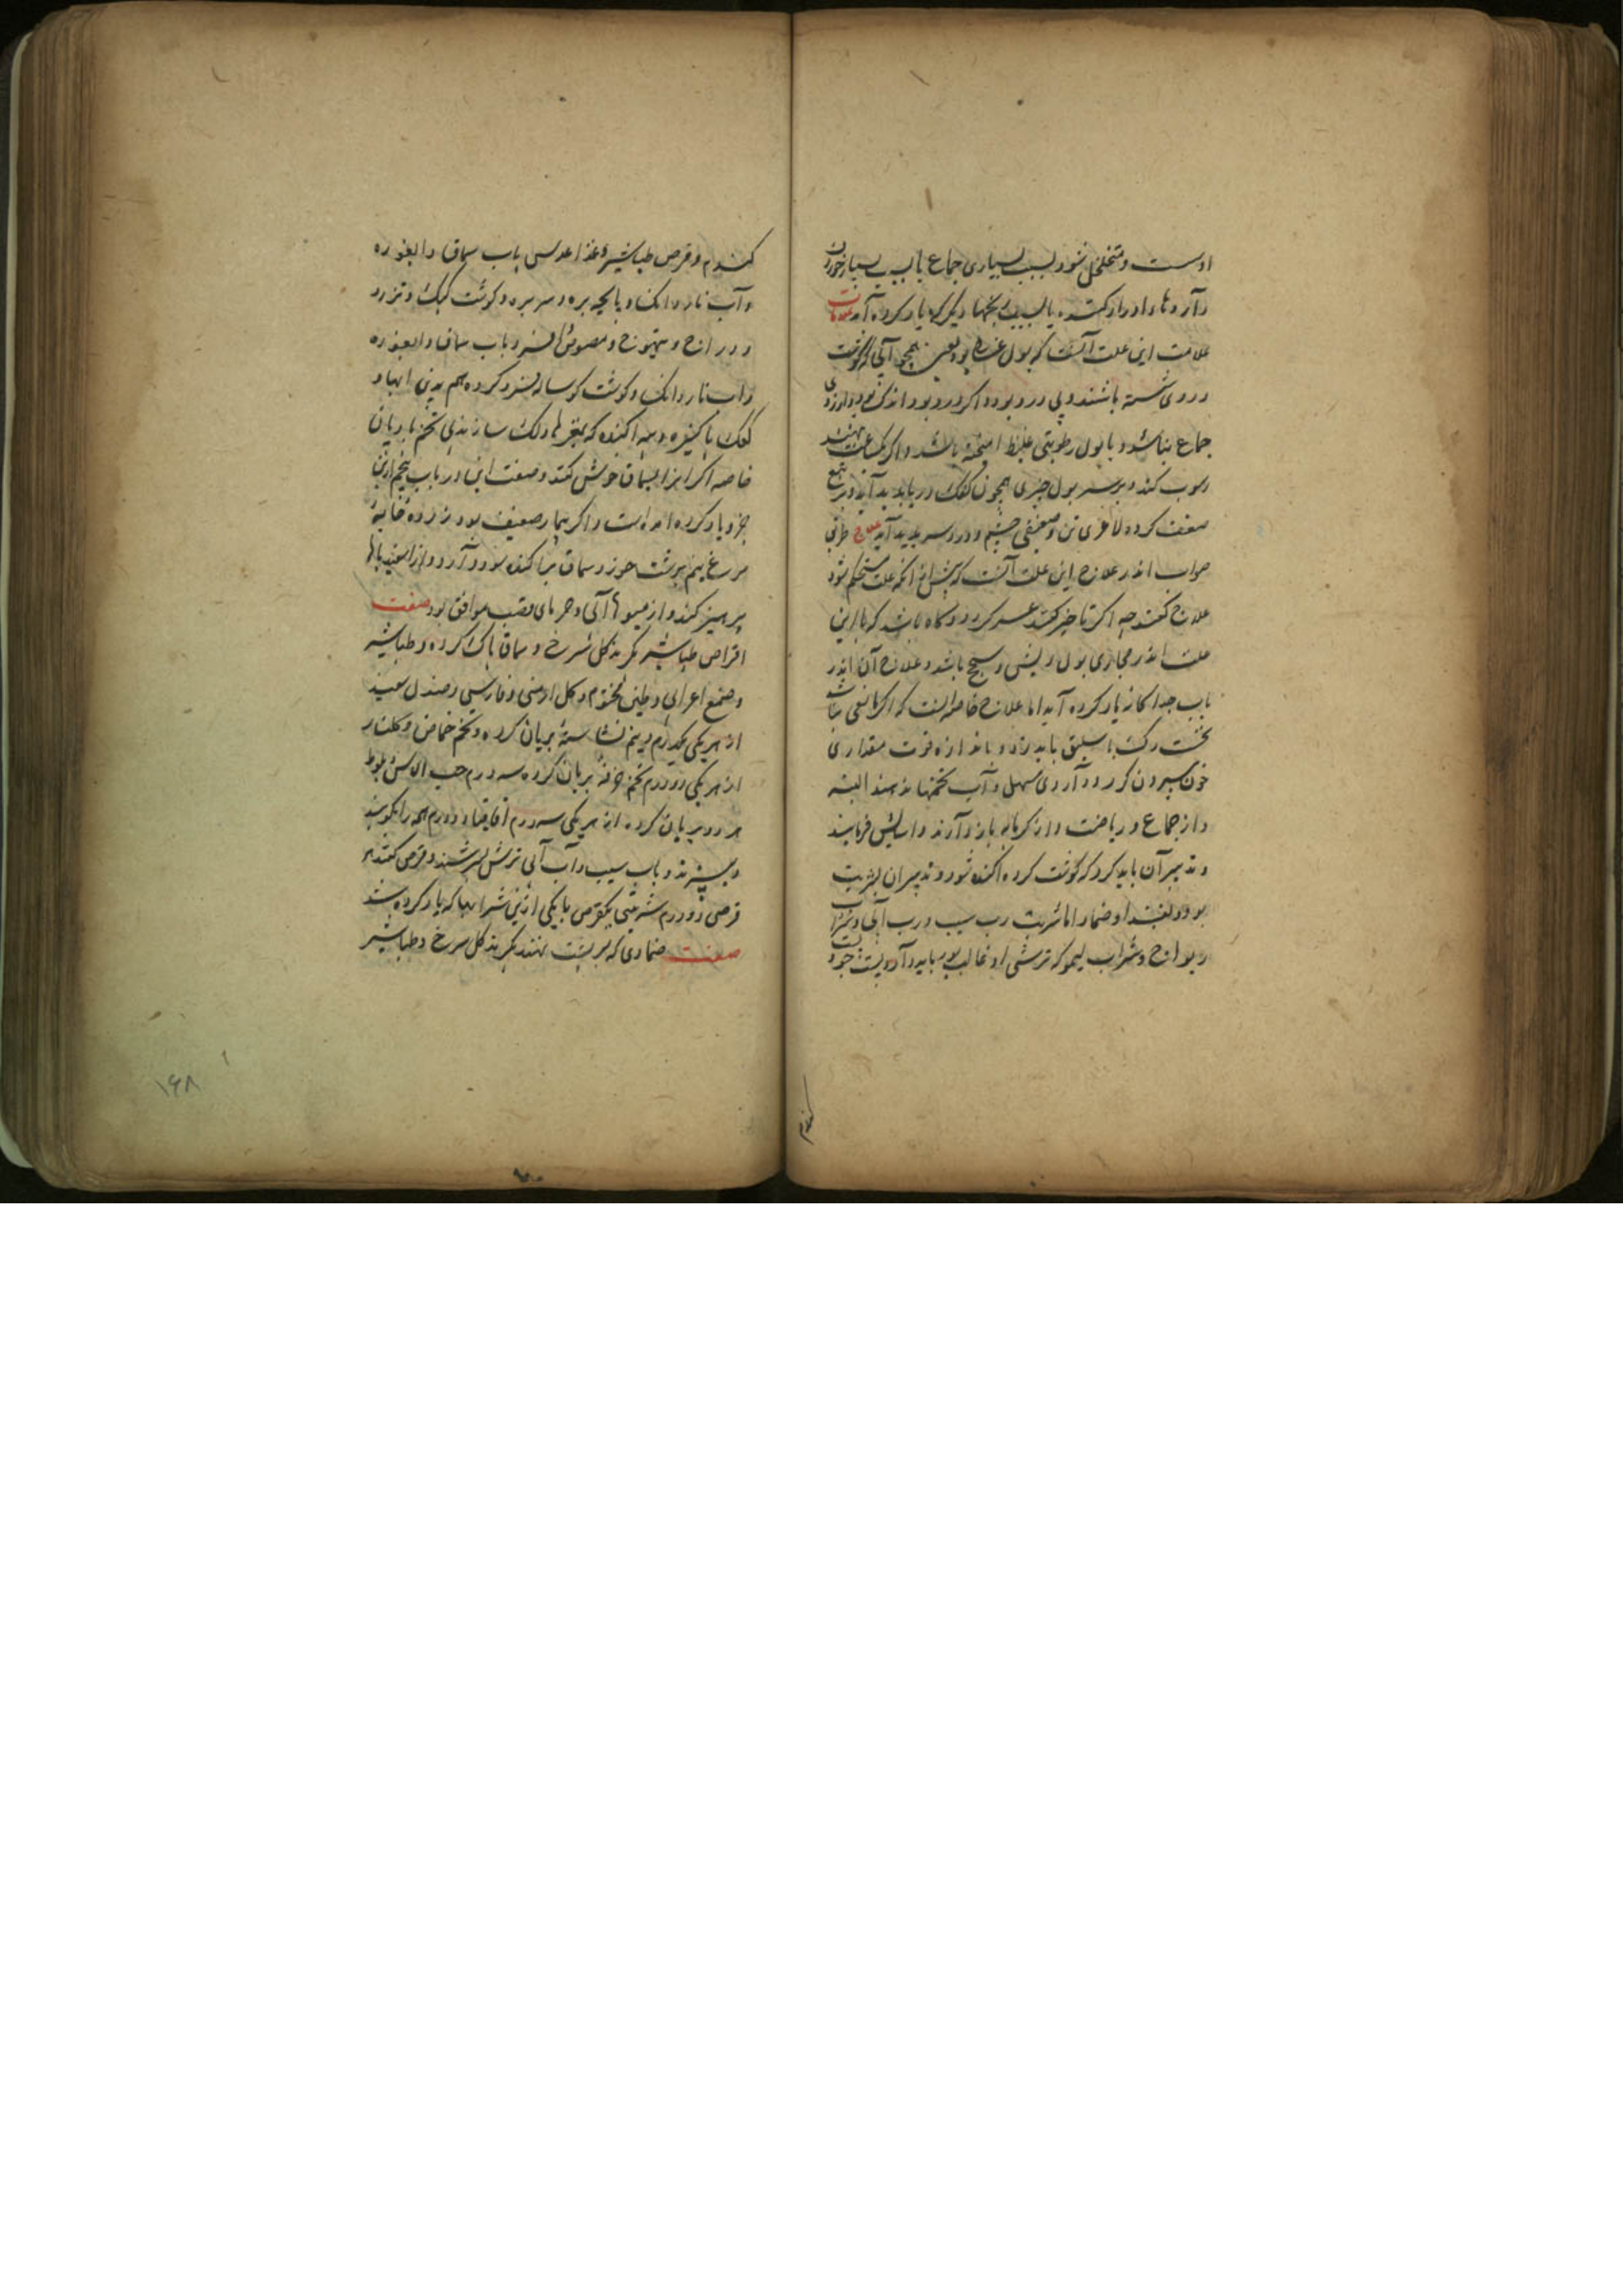 اوست و متخلخل شود بسبب بسیاری جماع یا بسبب بسیار خوردن
داروها و ادرار کننده یا بسبب دیگر که یاد کرده آمد علامات
علامت این علت آنست که بول غسالی بود یعنی همچو آبی که گوشت
در وی شسته باشند و بی درد بود و اگر درد بود اندک بود و آرزوی
جماع نباشد و با بول رطوبتی غلیظ امیخته باشد و اگر یکساعت بنهند
رسوب کند و بر سر بول چیزی همچون کفک دریا پدید آید و بر تبع
ضعف کرده لاغری تن و ضعیفی چشم و درد سر پدید آید علاج طریق
صواب اندر علاج این علت آنست که پیش از آنکه علت مستحکم شود
علاج کنند چه اگر تاخیر کنند عسر گردد و گاه باشد که با این
علت اندر مجاری بول ریش و سحج باشد و علاج آن اندر
باب جداگانه یاد کرده آید اما علاج خاصه انست که اگر مانعی نباشد
نخست رگ باسلیق باید زد و باندازه قوت مقداری
خون بیرون کرد و داروی مسهل و آب تخمها ندهند البته
و از جماع و ریاضت و از گرمابه باز دارند و اسایش فرمایند
و تدبیر آن باید کرد که گوشت کرده اکنده شود و تدبیر آن بشربت
بود و بغذا و ضماد اما شربت رب سیب و رب آبی و شراب
ریواج و شراب لیمو که ترشی او غالب بود باید داد و پست جو و پست
گندم
کندم و قرص طباشیر و غذا عدس باب سماق و اب غوره
و آب ناردانک و پاچه بره و سر بره و گوشت کبک و تذرو
و دراج و تیهوج و مصوص و افسرد باب سماق و اب غوره
و اب ناردانک و گوشت گوساله فسرد کرده هم بدین ابها و
کعک پاکیزه و پیه اکنده که بمغزها و نمک سازند بی تخم بریان
خاصه اگر انرا بسماق خوش کنند و صفت این در باب پنجم ازین
جزو یاد کرده امد است و اگر بیمار ضعیف بود زرده خایه
مرغ نیم برشت خورد سماق پراکنده سود دارد و از اسفیدباها
پرهیز کند و از میوها آبی و خرمای قصب موافق بود صفت
اقراص طباشیر بگیرند گل سرخ و سماق پاک کرده و طباشیر
و صمغ اعرابی و طین مختوم و گل ارمنی و فارسی و صندل سفید
از هر یکی یکدرم و نیم نشاسته بریان کرده و تخم حماض و گلنار
از هر یکی دو درم تخم خرفه بریان کرده سه درم حب الاس و بلوط
هر دو بریان کرده از هر یکی سه درم اقاقیا دو درم همه را بکوبند
و ببیزند و باب سیب و آب آبی ترش بسرشند و قرص کنند هر
قرصی دو درم شربتی یکقرص با یکی ازین شرابها که یاد کرده شد
صفت ضمادی که بر پشت نهند بگیرند گل سرخ و طباشیر
۱۶۸